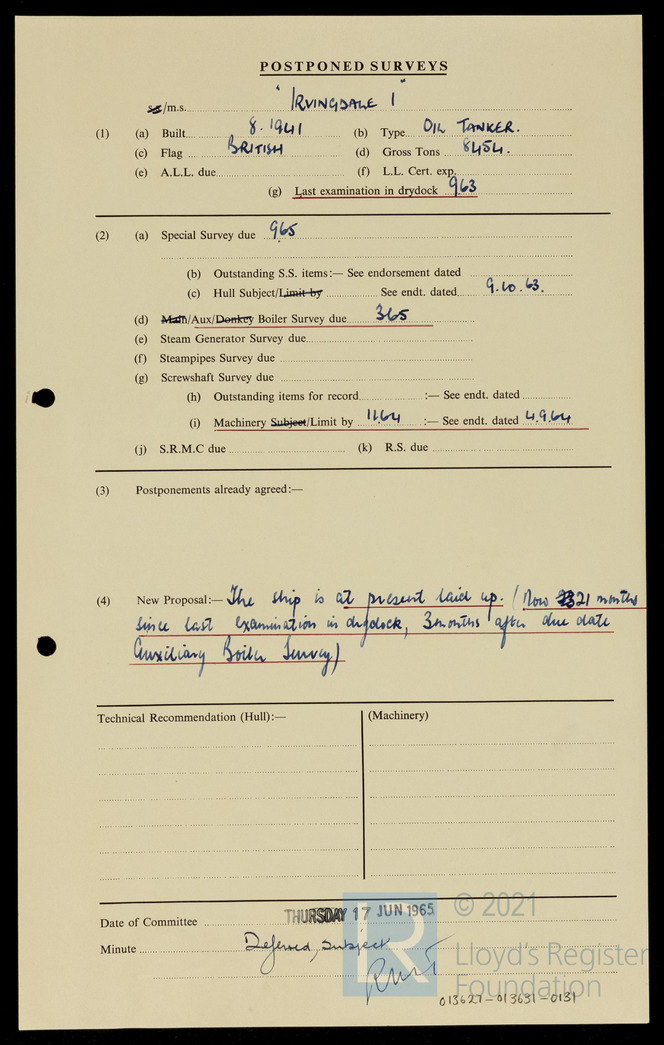 POSTPONED SURVEYS
s.s/m.s. "IRVINGDALE 1"
(1) (a) Built 8.1941 (b) Type OIL TANKER.
(c) Flag BRITISH (d) Gross Tons 8454.
(e) A.L.L. due (f) L.L. Cert. exp.
(g) Last examination in drydock 963
(2) (a) Special Survey due 965
(b) Outstanding S.S. items:— See endorsement dated
(c) Hull Subject/Limit by See endt. dated 9.10.63.
(d) Main/Aux/Donkey Boiler Survey due 365
(e) Steam Generator Survey due
(f) Steampipes Survey due
(g) Screwshaft Survey due
(h) Outstanding items for record :— See endt. dated
(i) Machinery Subject/Limit by 1164 :— See endt. dated 4.9.64
(j) S.R.M.C due (k) R.S. due
(3) Postponements already agreed:—
(4) New Proposal:— The ship is at present laid up. (Now 21 months
since last examination in drydock, 3 months after due date
Auxiliary Boiler Survey)
Technical Recommendation (Hull):— (Machinery)
Date of Committee THURSDAY 17 JUN 1965
Minute Deferred, Subject
© 2021
Lloyd's Register
Foundation
013627-013631-0131